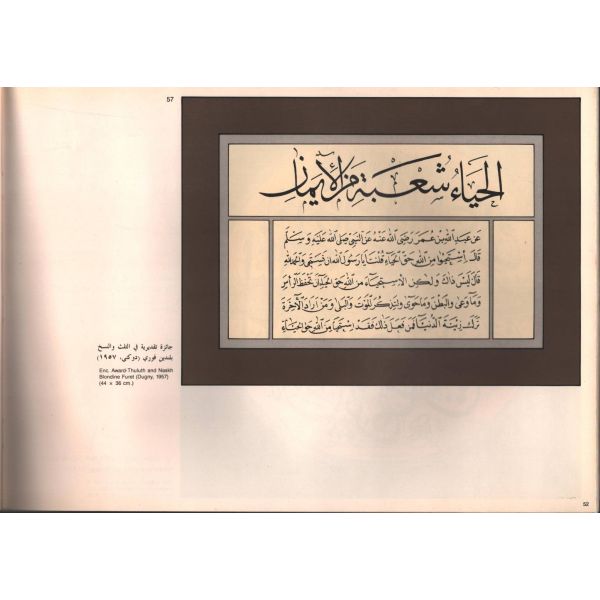 57
الحياء شعبة من الإيمان
عن عبد الله بن عمر رضي الله عنه عن النبي صلى الله عليه وسلم
قال استحيوا من الله حق الحياء قلنا يا رسول الله ان نستحي والحمد لله
قال ليس ذاك ولكن الاستحياء من الله حق الحياء ان تحفظ الرأس
وما وعى والبطن وما حوى ولتذكر الموت والبلى ومن اراد الآخرة
ترك زينة الدنيا فمن فعل ذلك فقد استحيا من الله حق الحياء
جائزة تقديرية في الثلث والنسخ
بلندين فوري (دوكني، ١٩٥٧)
Enc. Award-Thuluth and Naskh
Blondine Furet (Dugny, 1957)
(44 x 36 cm.)
52